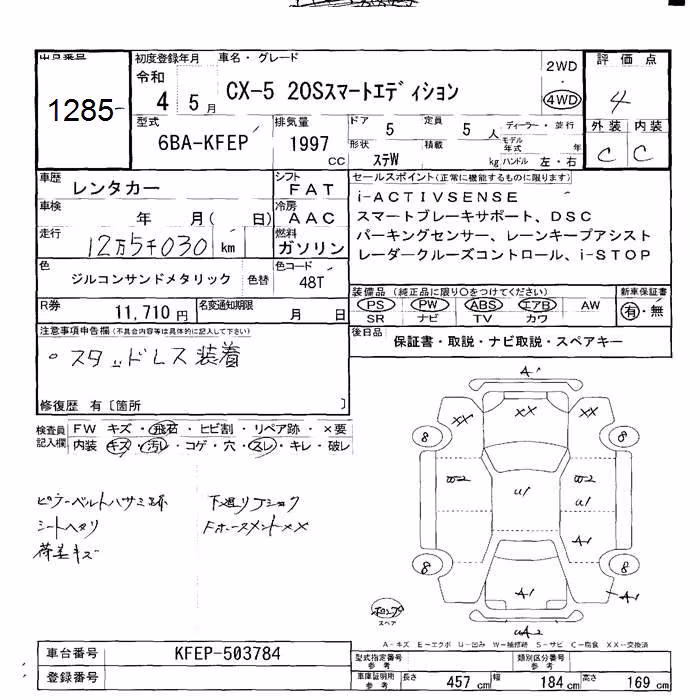 出品番号
1285-
初度登録年月
令和
4 5月
車名・グレード
CX-5 20Sスマートエディション
2WD
4WD
評価点
4
型式
6BA-KFEP
排気量
1997
CC
ドア
5
定員
5 人
ディーラー・並行
形状
ステW
積載
kg
モデル年式
年
ハンドル 左・右
外装 内装
C C
車歴
レンタカー
シフト
FAT
車検
年 月( 日)
冷房
AAC
走行
12万5千030 km
燃料
ガソリン
色
ジルコンサンドメタリック
色替
色コード
48T
R券
11,710円
名変通知期限
月 日
セールスポイント(正常に機能するものに限ります)
i-ACTIVSENSE
スマートブレーキサポート、DSC
パーキングセンサー、レーンキープアシスト
レーダークルーズコントロール、i-STOP
装備品(純正品に限り○をつけてください)
PS PW ABS エアB AW
SR ナビ TV カワ
新車保証書
有・無
後日品
保証書・取説・ナビ取説・スペアキー
注意事項申告欄(不具合内容等は具体的に記入して下さい)
。スタッドレス装着
修復歴 有〔箇所 〕
検査員記入欄
FW キズ・飛石・ヒビ割・リペア跡・×要
内装 キズ・汚レ・コゲ・穴・スレ・キレ・破レ
ピラーベルトハサミ跡
シートヘタリ
荷差キズ
下廻りJショク
Fホースメント××
A
XX XX XX
8 8
W2 U1 W2
U1
A1
8 8
A1 A1
スペア
WA2
A-キズ E-エクボ U-凹み W-補修跡 S-サビ C-腐食 XX-交換済
車台番号
KFEP-503784
登録番号
型式指定番号
参考
類別区分番号
参考
車庫証明用
参考
長さ 457cm 幅 184cm 高さ 169cm